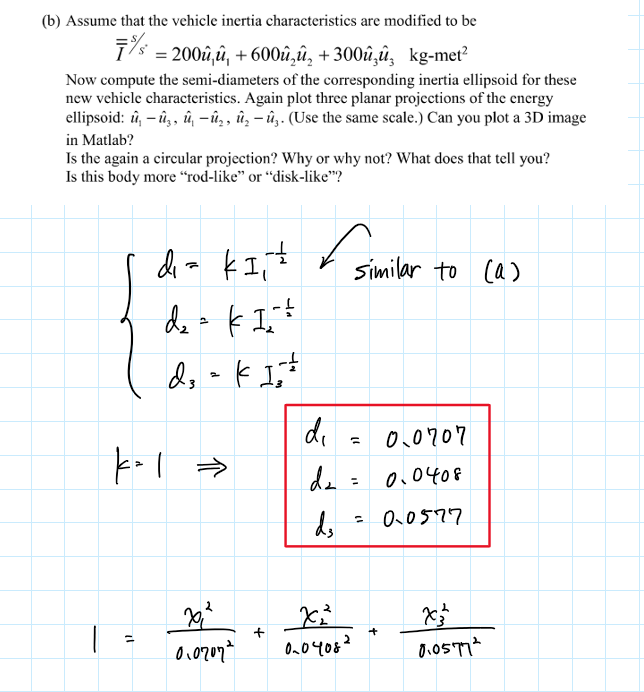 (b) Assume that the vehicle inertia characteristics are modified to be
I̿^{S/S*} = 200û₁û₁ + 600û₂û₂ + 300û₃û₃ kg-met²
Now compute the semi-diameters of the corresponding inertia ellipsoid for these
new vehicle characteristics. Again plot three planar projections of the energy
ellipsoid: û₁ – û₃, û₁ – û₂, û₂ – û₃. (Use the same scale.) Can you plot a 3D image
in Matlab?
Is the again a circular projection? Why or why not? What does that tell you?
Is this body more “rod-like” or “disk-like”?
d₁ = k I₁^{-1/2} similar to (a)
d₂ = k I₂^{-1/2}
d₃ = k I₃^{-1/2}
k=1 ⇒
d₁ = 0.0707
d₂ = 0.0408
d₃ = 0.0577
1 = x₁²/0.0707² + x₂²/0.0408² + x₃²/0.0577²